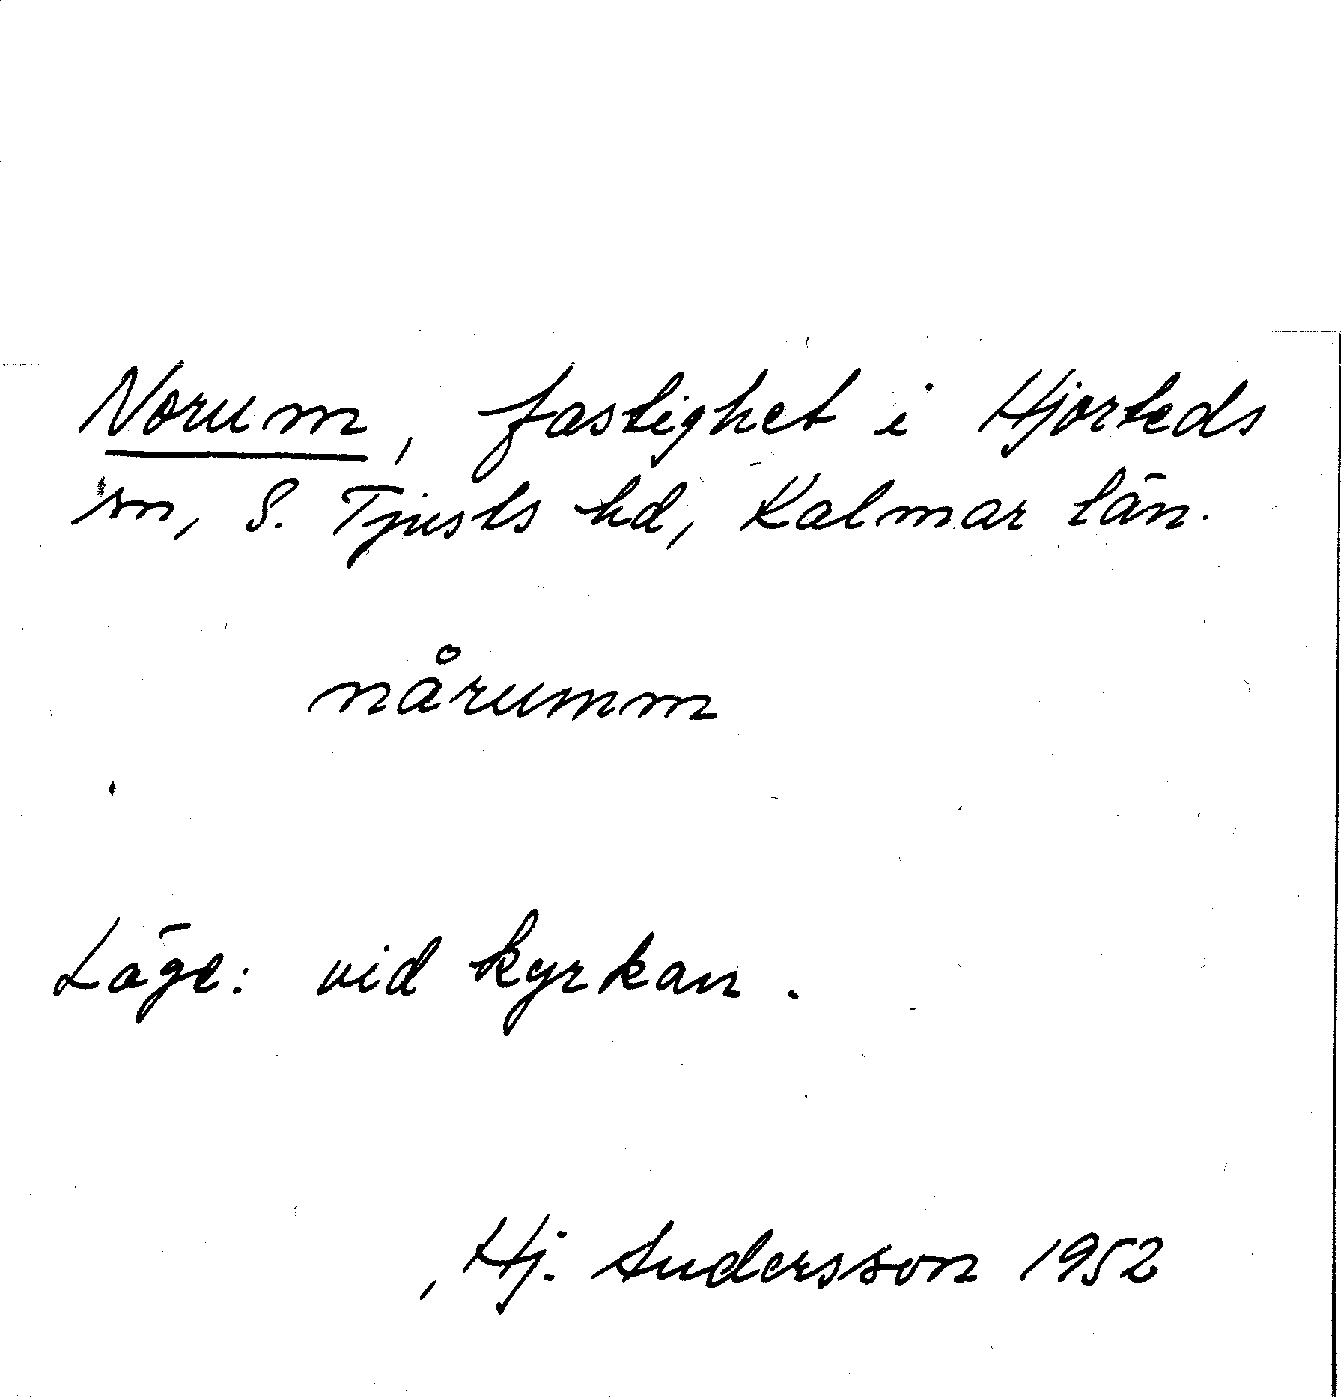 Norum, fastighet i Hjorteds
sn, S. Tjusts hd, Kalmar län.
nårumm
Läge: vid kyrkan.
Hj. Andersson 1952